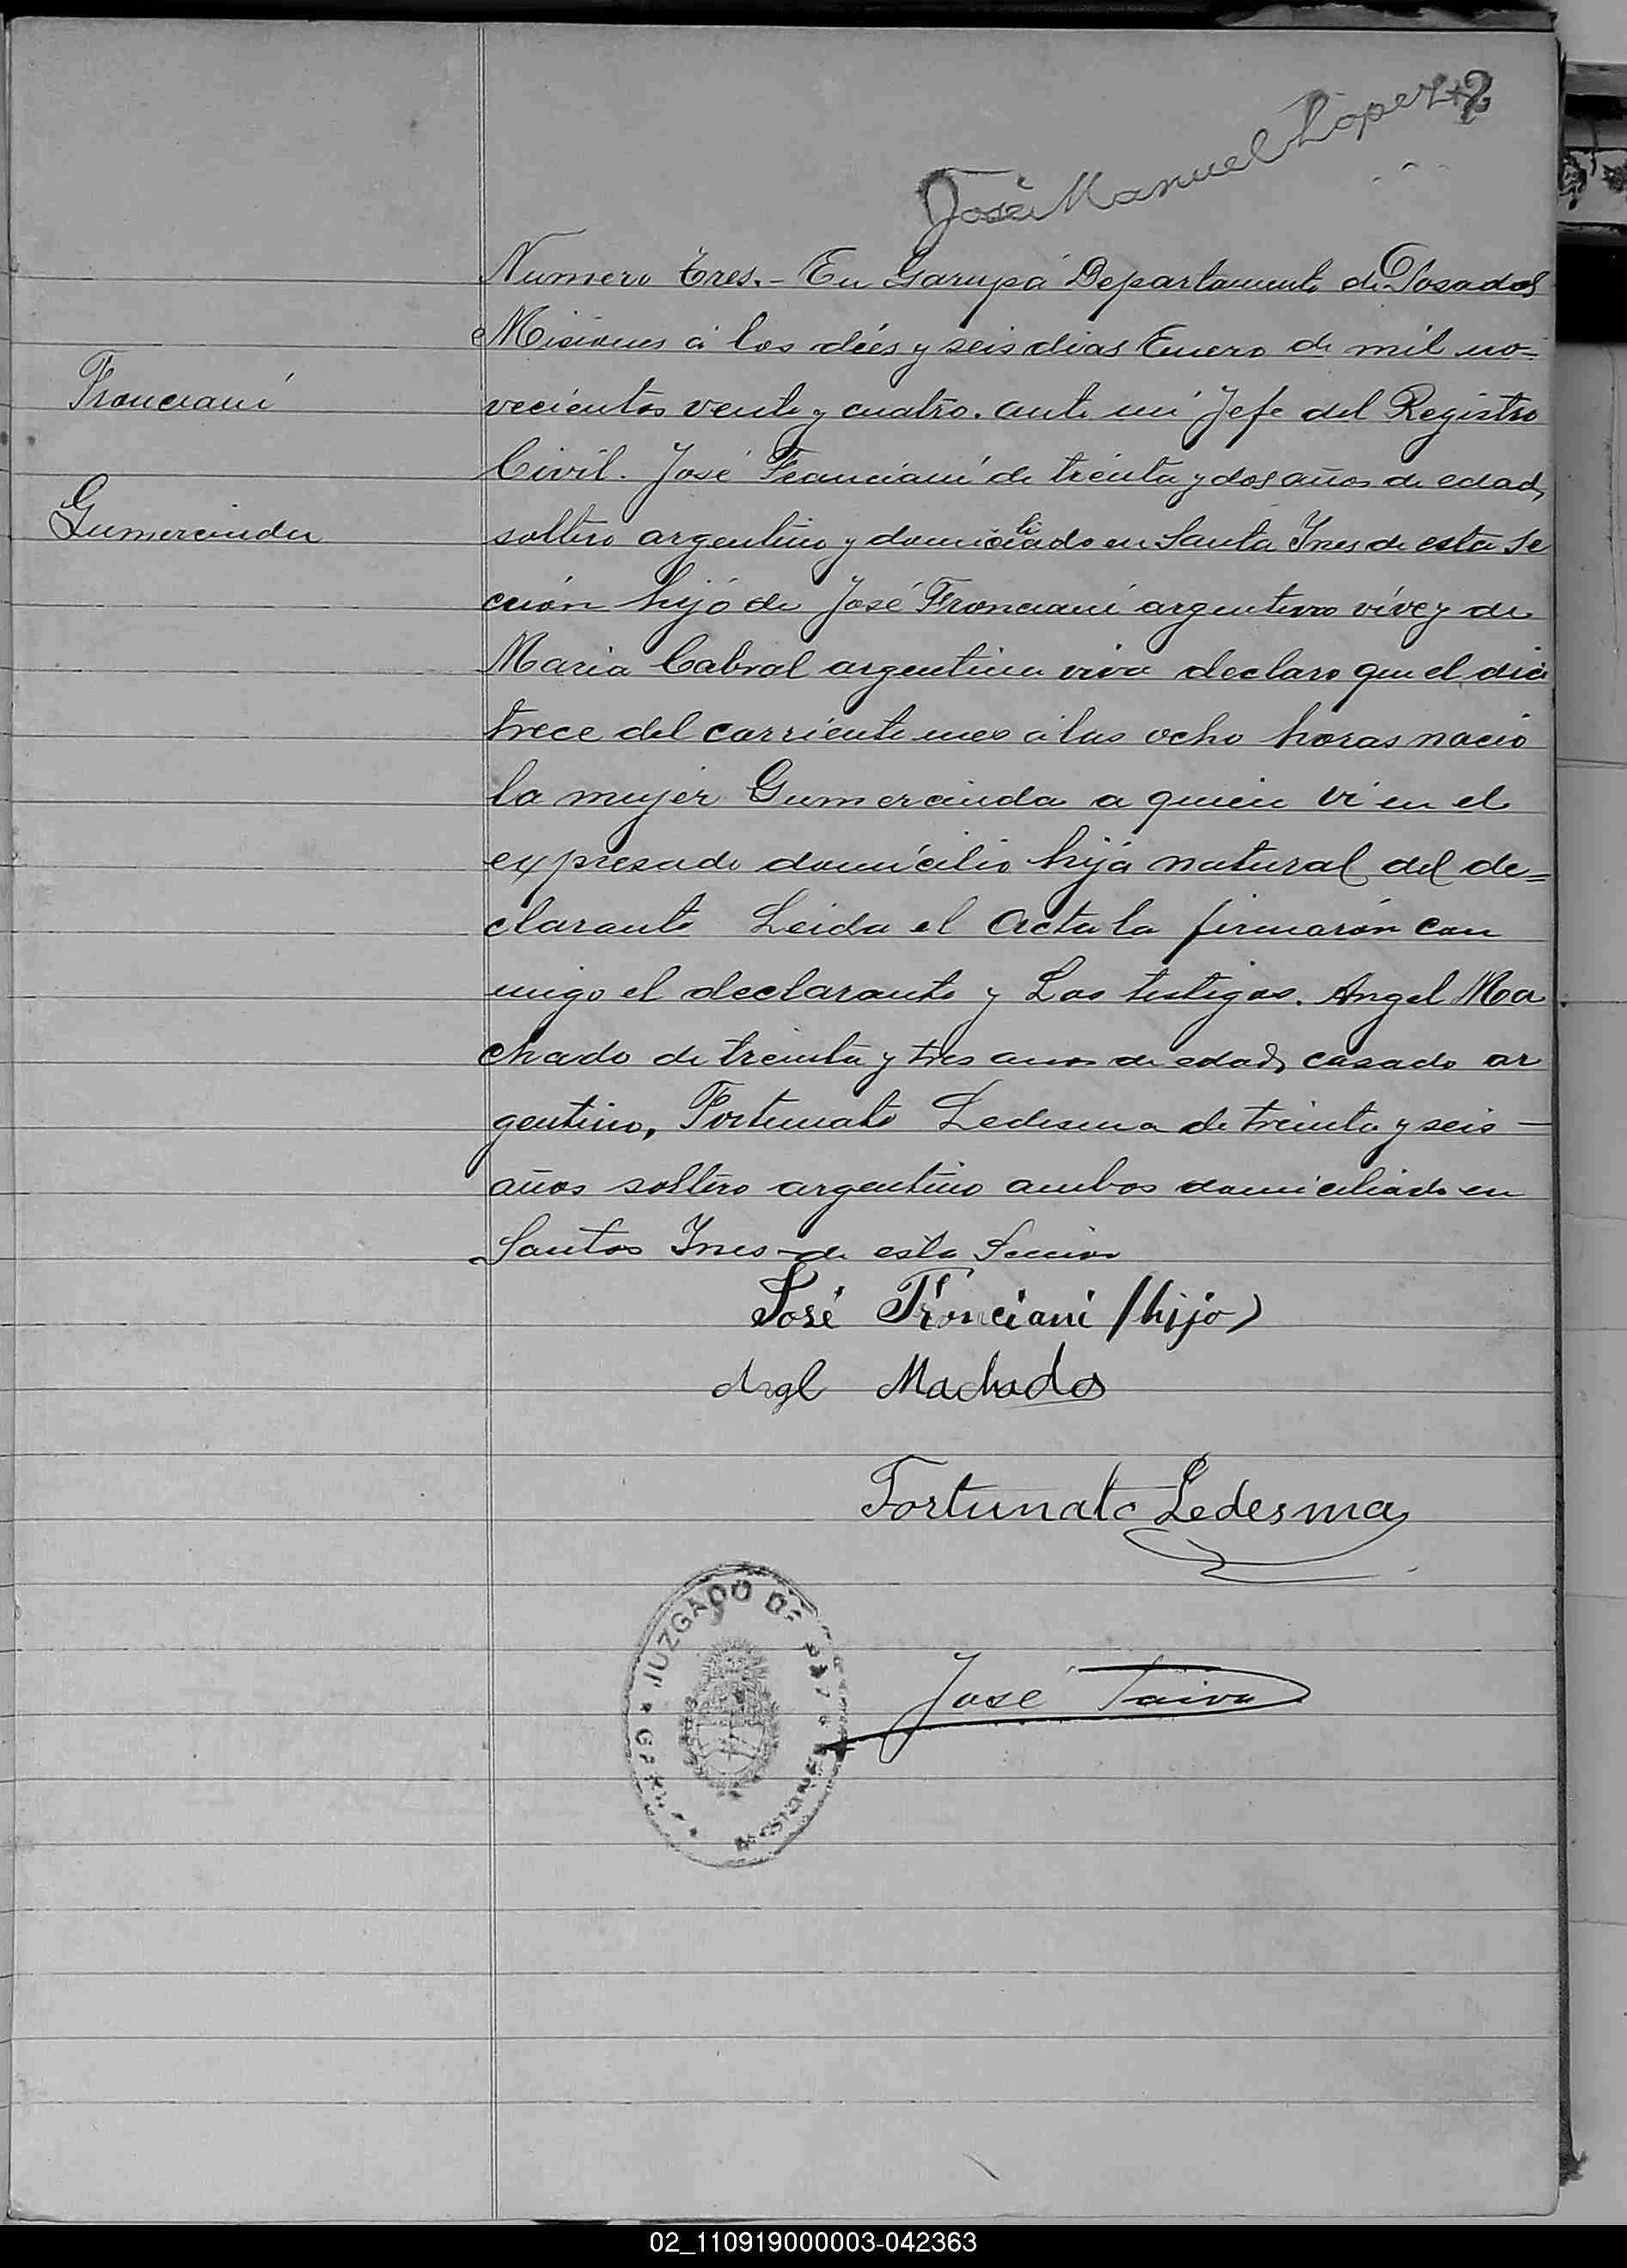 2
José Manuel Lopez
Numero tres.- En Garupá Departamento de Posadas
Misiones á los diés y seis dias Enero de mil no-
Fronciani
vecientos veinte y cuatro. ante mi Jefe del Registro
Civil. José Franciani de treinta y dos años de edad,
Gumercinda
soltero argentino y domiciliado en Santa Ines de esta Se
cción hijo de José Fronciani argentino vive y de
Maria Cabral argentina viva declaro que el dia
trece del corriente mes á las ocho horas nacio
la mujer Gumercinda a quien vi en el
expresado domicilio hija natural del de=
clarante Leida el Acta la firmarón con
migo el declarante y Los testigos. Angel Ma
chado de treinta y tres anos de edad, casado ar
gentino, Fortunato Ledesma de treinta y seis —
años soltero argentino ambos domiciliado en
Santos Ines de esta Seccion
José Fronciani (hijo)
Angl Machado
Fortunato Ledesma
José Paiva
JUZGADO DE PAZ
MISIONES
02_110919000003-042363